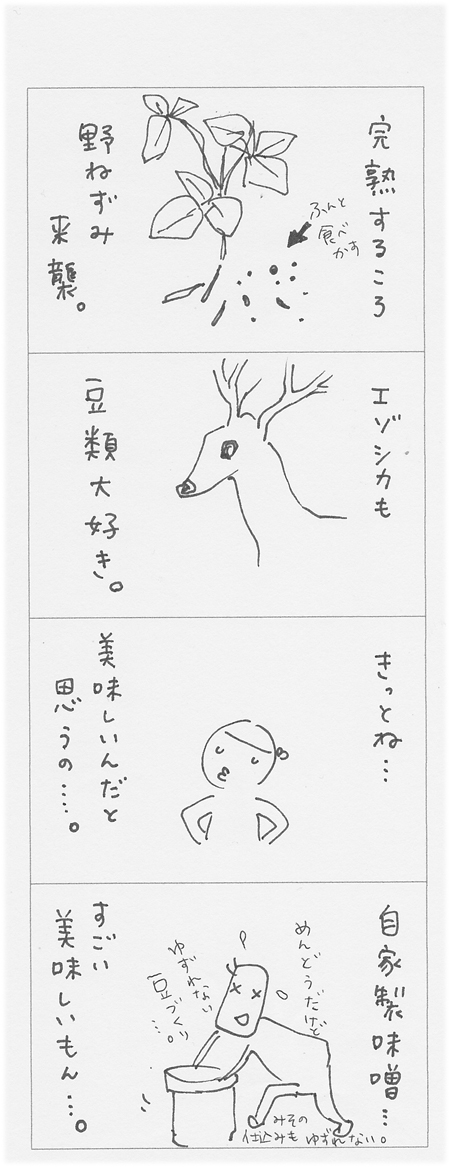 完熟するころ
ふんと
食べ
かす
野ねずみ
来襲。
エゾシカも
豆類大好き。
きっとね…
美味しいんだと
思うの…。
自家製味噌…
めんどうだけど
ゆずれない
豆づくり
…。
みその
仕込みも ゆずれない。
すごい
美味しいもん…。